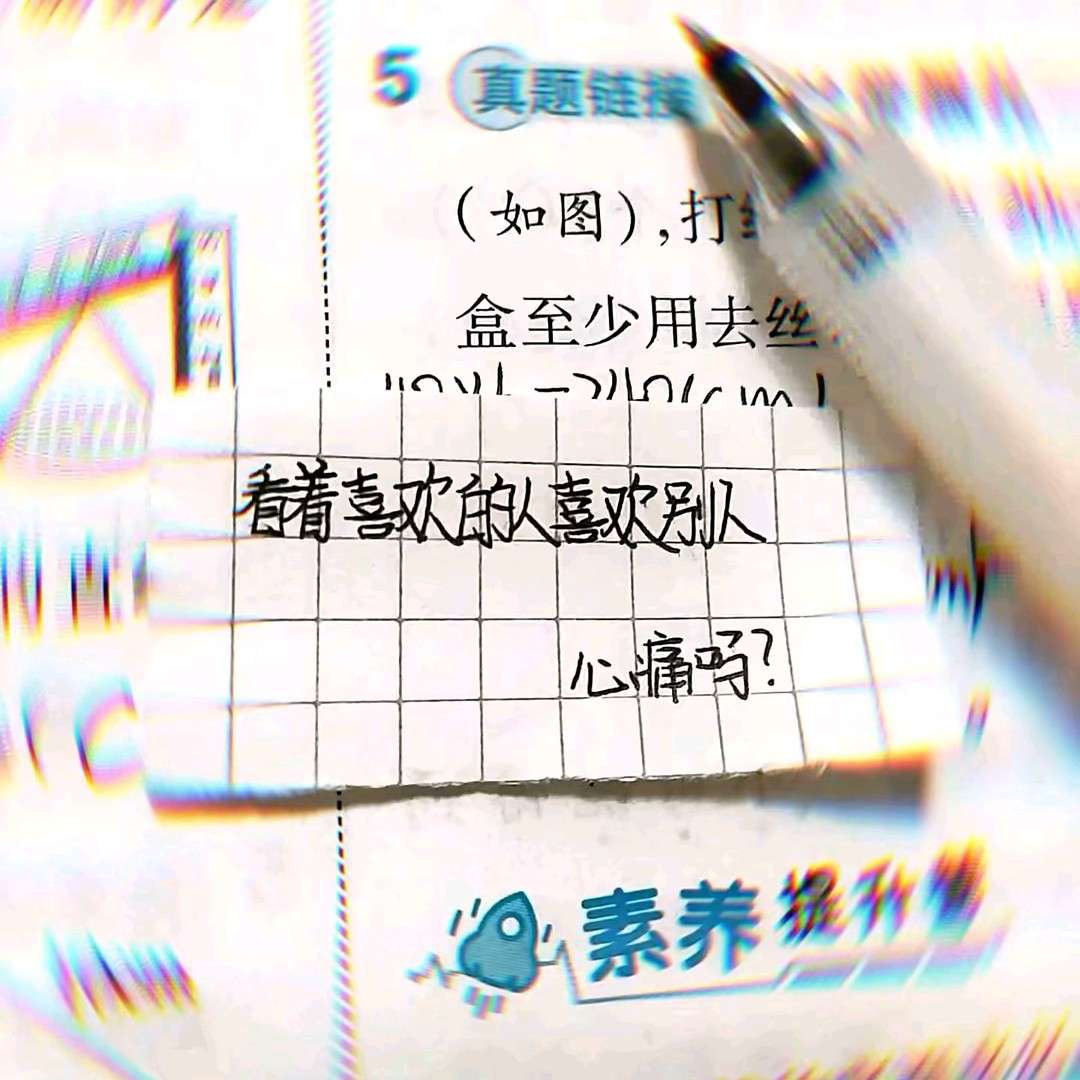 5 真题链接
(如图),打
盒至少用去丝
看着喜欢的人喜欢别人
心痛吗?
素养提升